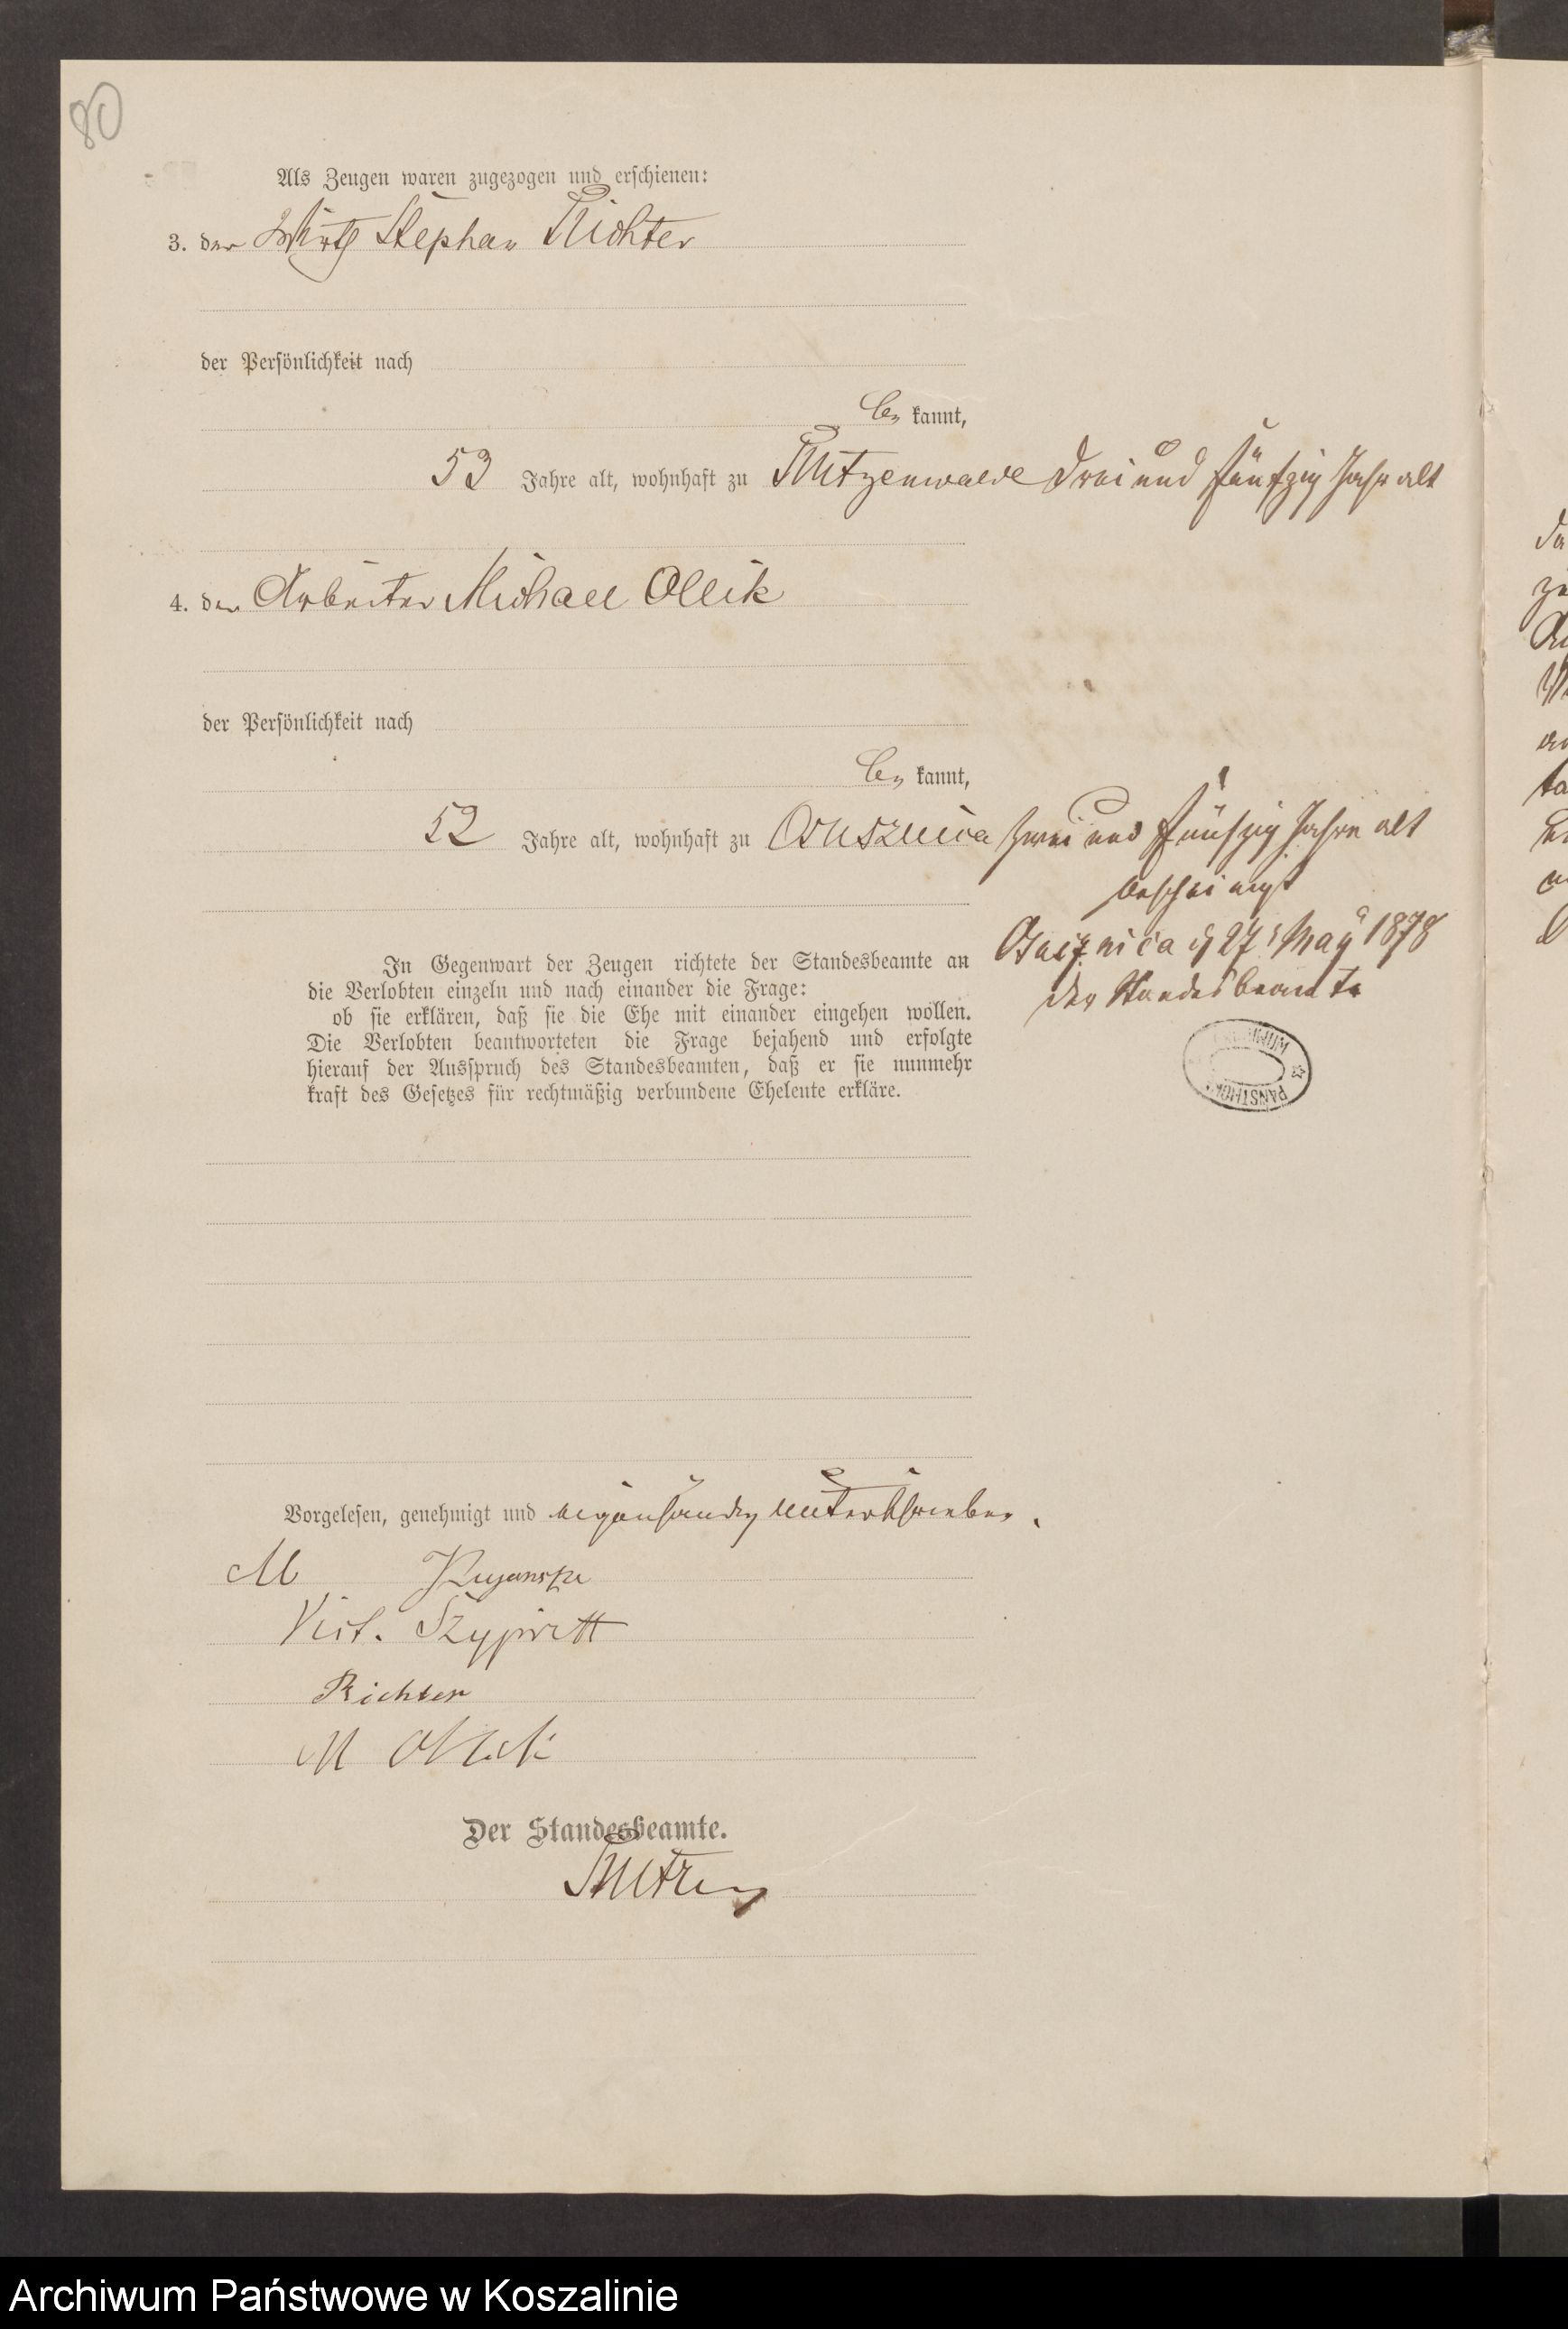 80
Als Zeugen waren zugezogen und erschienen:
3. der Wirth Stephan Richter
der Persönlichkeit nach
be kannt,
53 Jahre alt, wohnhaft zu Rützenwalde drei und fünfzig Jahr alt
4. der Arbeiter Michael Ollik
der Persönlichkeit nach
be kannt,
52 Jahre alt, wohnhaft zu Osusznica zwei und fünfzig Jahre alt
bescheinigt
Osusznica d 27t May 1878
der Standesbeamte
In Gegenwart der Zeugen richtete der Standesbeamte an
die Verlobten einzeln und nach einander die Frage:
ob sie erklären, daß sie die Ehe mit einander eingehen wollen.
Die Verlobten beantworteten die Frage bejahend und erfolgte
hierauf der Ausspruch des Standesbeamten, daß er sie nunmehr
kraft des Gesetzes für rechtmäßig verbundene Eheleute erkläre.
Vorgelesen, genehmigt und eigenhändig unterschrieben.
M
Vict.
Richter
M Ollik
Der Standesbeamte.
Archiwum Państwowe w Koszalinie